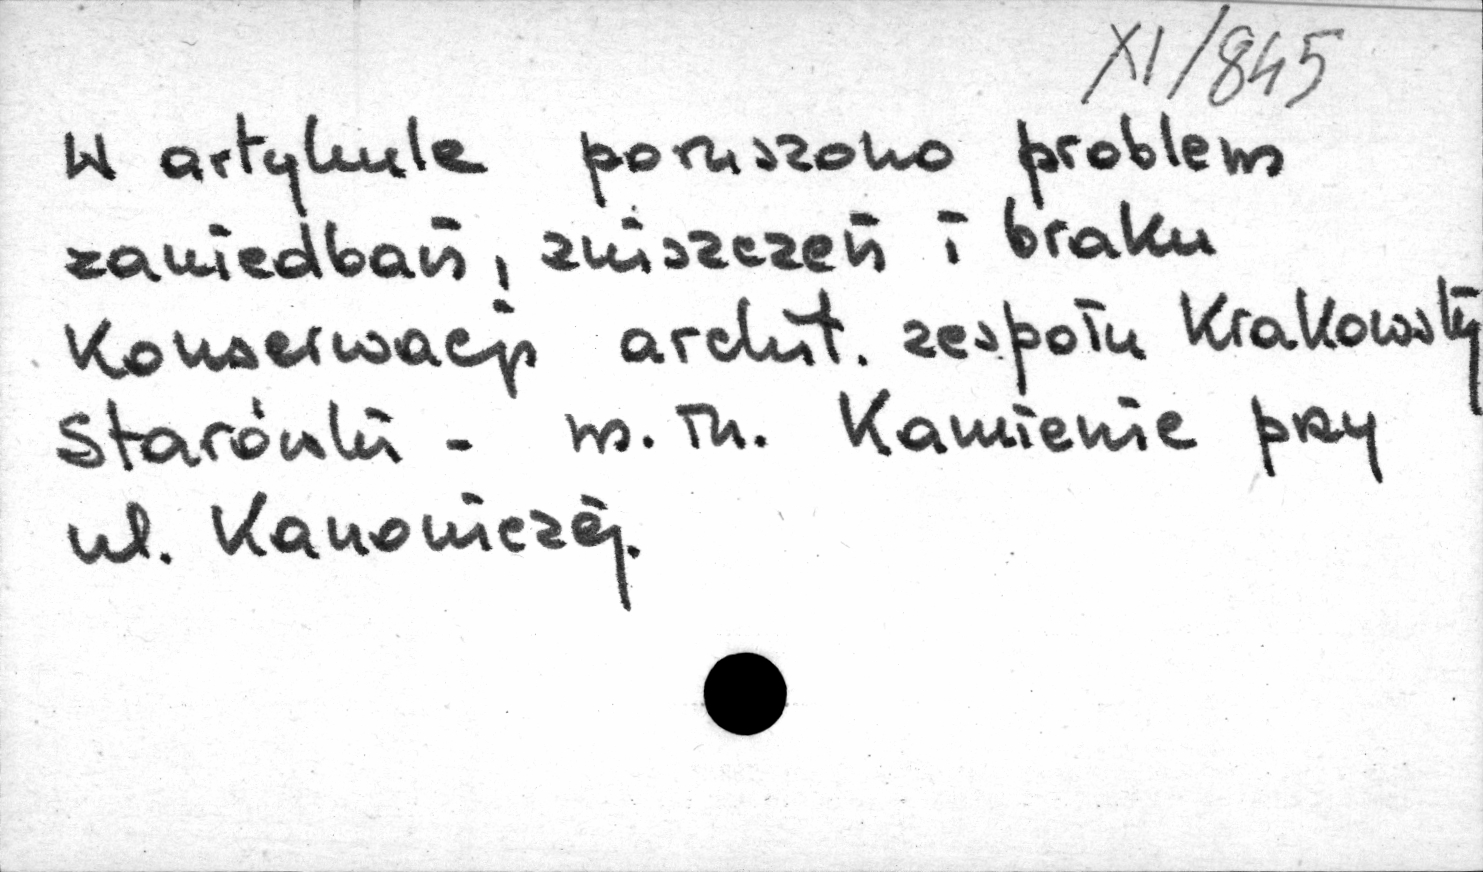 XI/845
W artykule poruszono problem
zaniedbań, zniszczeń i braku
Konserwacji archit. zespołu Krakowskiej
Starówki - m. in. Kamienie przy
ul. Kanoniczej.